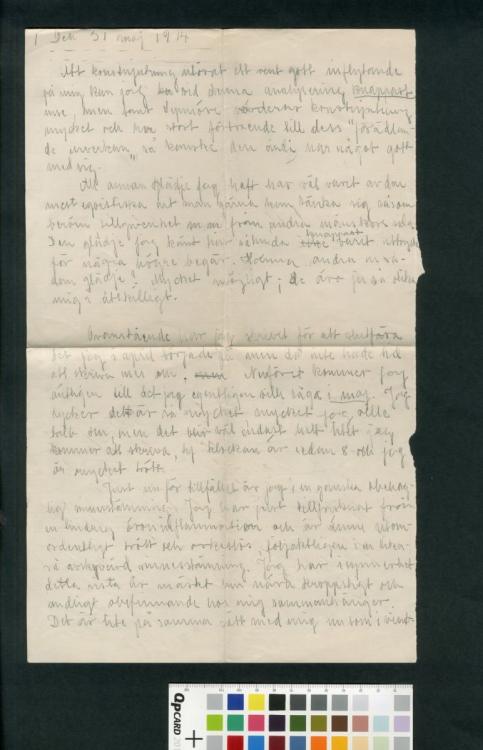 1 Den 31 maj 1914
Att konstnjutning utövat ett rent gott inflytande
på mig kan jag vid denna analysering knappast
inse, men farit värderar konstnjutning
mycket och har stort förtroende till dess "förädlan-
de inverkan", så kanske den ändå har något gott
med sig.
All annan glädje jag haft har väl varit av den
mest egoistiska art man gärna kan tänka sig såsom
beröm tillgivenhet m.m. från andra människors sida.
Den glädje jag känt har således knappast varit uttryck
för några högre begär. Känna andra en så-
dan glädje? Mycket möjligt; de äro ju så olika
mig i allt
Ovanstående har jag skrivit för att slutföra
det jag i april började på men då inte hade tid
att skriva mer om. Nuföret kommer jag
äntligen till det jag egentligen ville säga i maj. Jag
tycker det är så mycket mycket jag ville
tala om, men det blir väl endast helt litet jag
kommer att skriva, ty klockan är redan 8 och jag
är mycket trött.
Just nu för tillfället är jag i en ganska obehag-
lig sinnesstämning. Jag har just tillfrisknat från
en lindrig öroninflammation och är ännu utom-
ordentligt trött och arbetslös, följaktligen i en
sinnesstämning. Jag har i synnerhet
detta sista år märkt hur nära kroppsligt och
andligt obefinnande hos mig sammanhänger.
Det är lite på samma sätt med mig nu som i